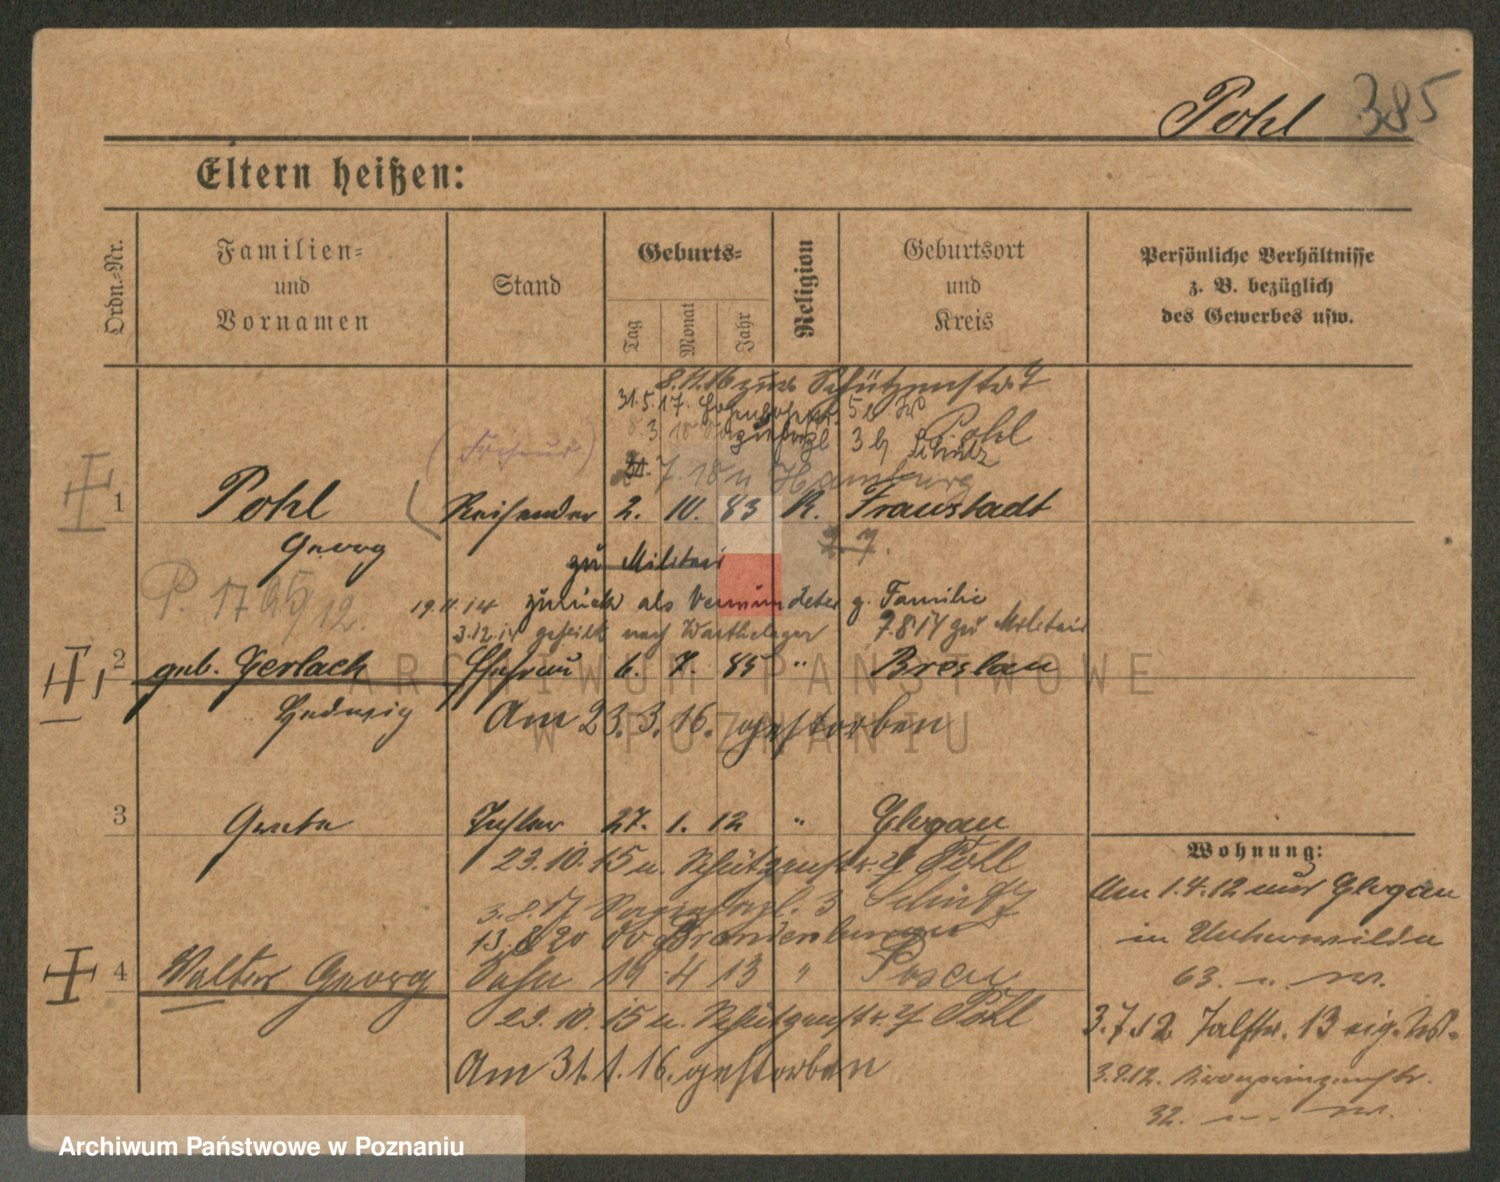 Pohl 385
Eltern heißen:
Ordn.-Nr.
Familien-
und
Vornamen
Stand
Geburts-
Tag
Monat
Jahr
Religion
Geburtsort
und
Kreis
Persönliche Verhältnisse
z. B. bezüglich
des Gewerbes usw.
8.11.16 zur Schützenstr.
31.5.17.
Pohl
7. 18 n Hamburg
(Friseur)
1 Pohl Reisender 2. 10. 83 K. Fraustadt
Georg
zu Militair
P. 1765/12.
19.11.14 zurück als Verwundeter z. Familie
3.12.14 geheilt nach Warthelager 7.8.14 zu Militair
2 geb. Gerlach Ehefrau 6. 7. 85 " Breslau
Hedwig Am 23.3.16. gestorben
3 Greta Tochter 27. 1. 12 " Glogau
23.10.15 u. Schützenstr. Pohl
3.8.17
13.8.20
4 Walter Georg Sohn 19 4 13 " Posen
23.10.15 u. Schützenstr. Pohl
Am 31.1.16. gestorben
Wohnung:
Am 1.4.12 aus Glogau
in Unterwilda
63.
3.7.12 13
3.9.12. Kronprinzenstr.
32.
ARCHIWUM PAŃSTWOWE
W POZNANIU
Archiwum Państwowe w Poznaniu